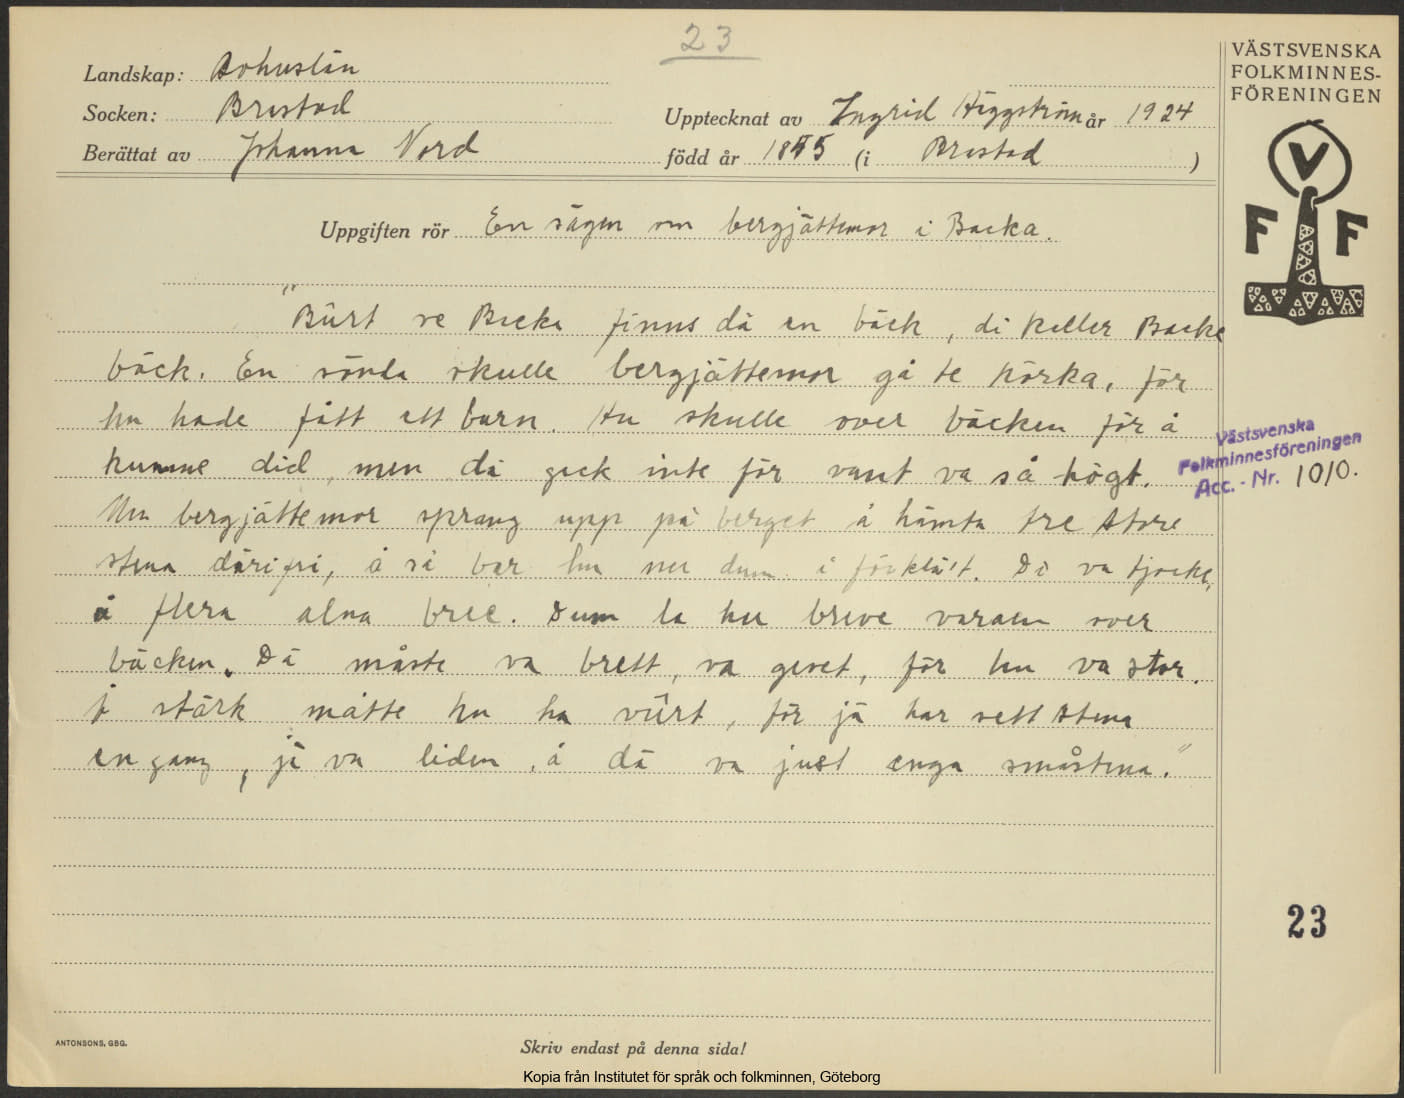 23
Landskap: Bohuslän
Socken: Brastad
Upptecknat av Ingrid Häggström år 1924
Berättat av Johanna Nord
född år 1855 (i Brastad)
Uppgiften rör En sägen om bergjättemor i Backa.
"Bûrt ve Backa finns dä en bäck, di kaller Backe
bäck. En sönda skulle bergjättemor gå te körka, för
hu hade fått ett barn. Hu skulle over bäcken för å
kumme did, men dä geck inte för vant va så högt.
Men bergjättemor sprang upp på berget å hämta tre store
stena därifrå, å så bar hu ner dum i förklä't. Di va tjocke,
å flera alna bree. Dum la hu breve varann over
bäcken. Dä måste va brett, va gevet, för hu va stor.
Å stärk måtte hu ha vûrt, för jä har sett stena
en gang, jä va liden, å dä va just enga småstena."
VÄSTSVENSKA
FOLKMINNES-
FÖRENINGEN
V
F F
Västsvenska
Folkminnesföreningen
Acc.-Nr. 1010.
23
ANTONSONS, GBG.
Skriv endast på denna sida!
Kopia från Institutet för språk och folkminnen, Göteborg